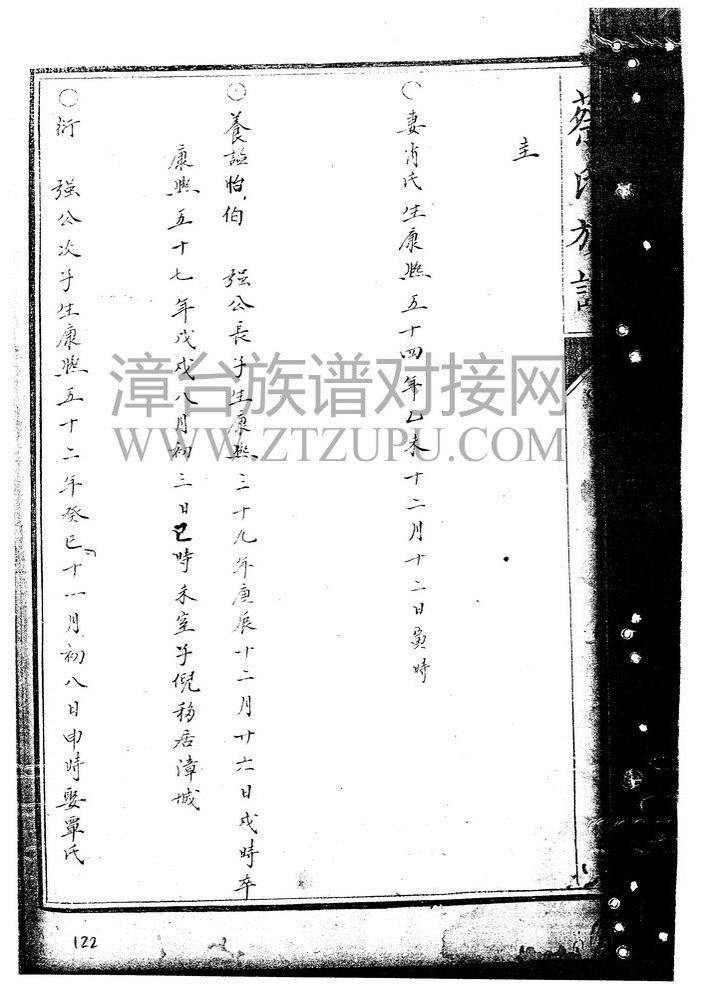 蔡氏族譜
圭
○妻肖氏生康熙五十四年乙未十二月十二日寅時
○養謚怡伯 强公長子生康熙三十九年庚辰十二月廿六日戌時卒
康熙五十七年戊戌八月初三日巳時未室子倪移居漳城
○衍 强公次子生康熙五十二年癸巳十一月初八日申時娶覃氏
漳台族谱对接网
WWW.ZTZUPU.COM
122